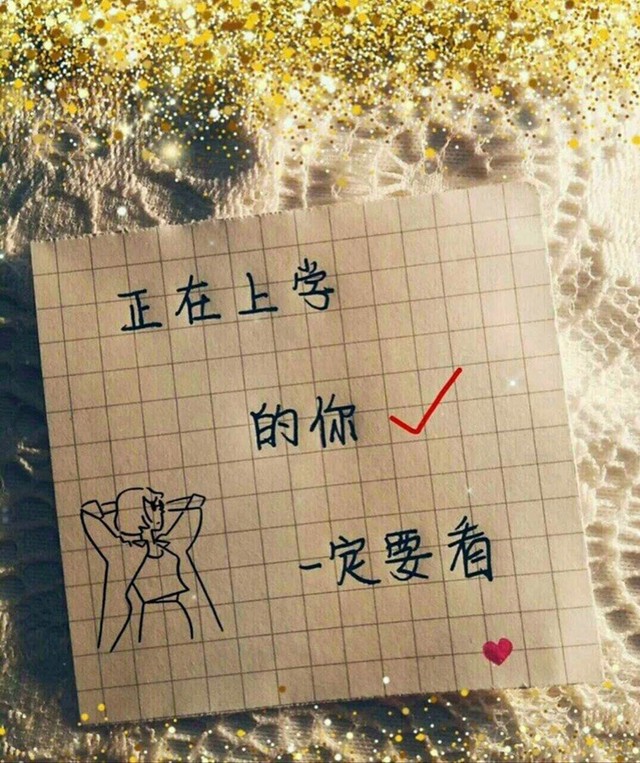 正在上学
的你
一定要看